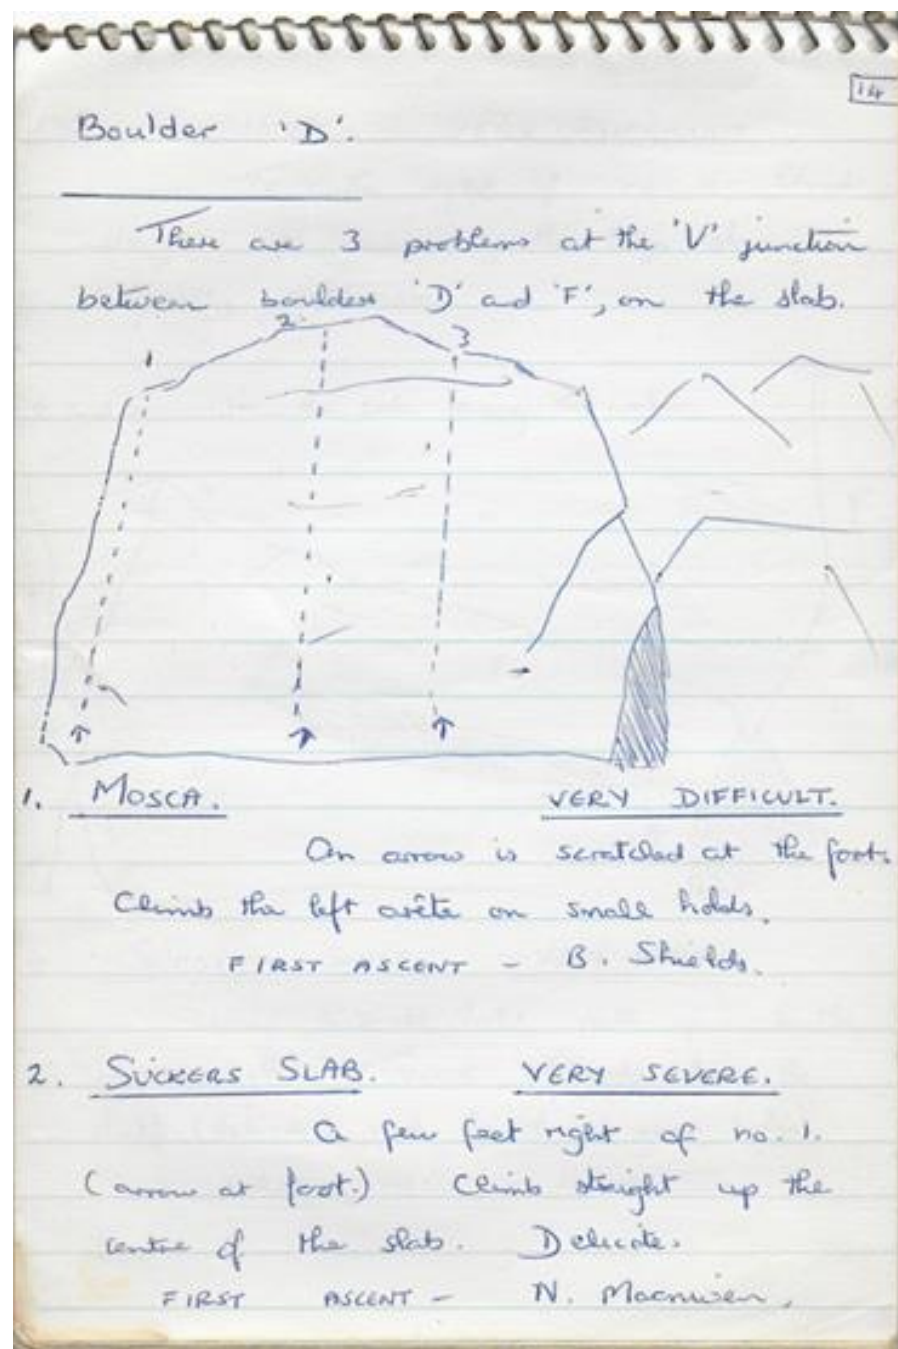 14
Boulder 'D'.
There are 3 problems at the 'V' junction
between boulders 'D' and 'F', on the slab.
1 2 3
1. MOSCA. VERY DIFFICULT.
An arrow is scratched at the foot.
Climb the left arête on small holds.
FIRST ASCENT - B. Shields.
2. SUCKERS SLAB. VERY SEVERE.
A few feet right of no. 1.
(arrow at foot.) Climb straight up the
centre of the slab. Delicate.
FIRST ASCENT - N.